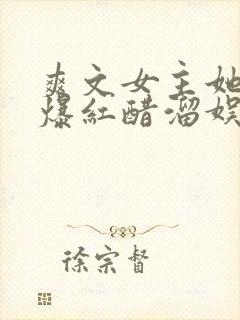 爽文女主她
爆紅醋溜娛
徐宗督